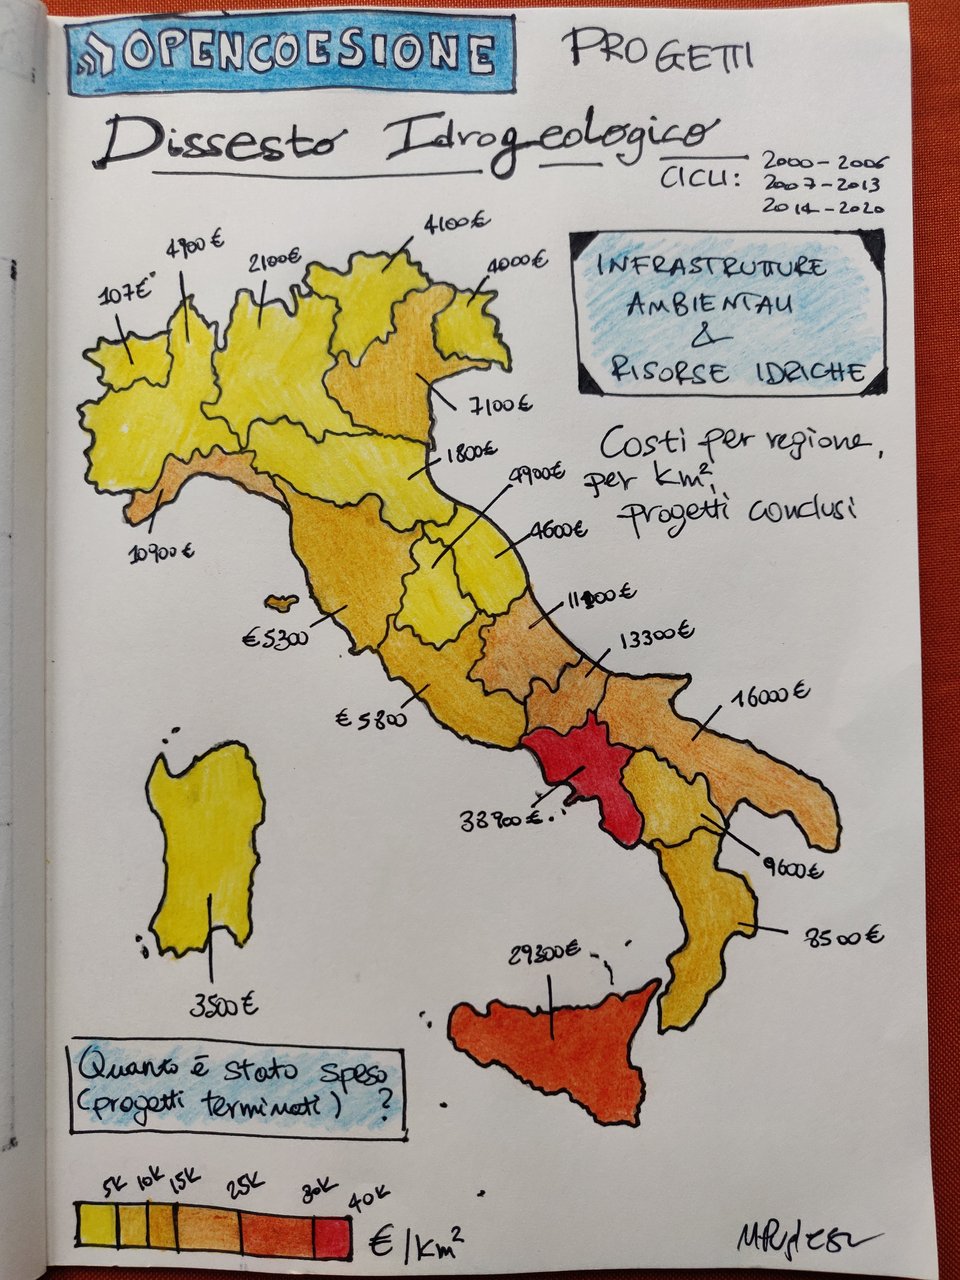 OPENCOESIONE
PROGETTI
Dissesto Idrogeologico
CICLI: 2000-2006
2007-2013
2014-2020
INFRASTRUTTURE
AMBIENTALI
&
RISORSE IDRICHE
Costi per regione,
per km²,
progetti conclusi
4900€
2100€
4100€
4000€
107€
7100€
1800€
4900€
4600€
10900€
€5300
13300€
€5800
16000€
38900€
9600€
8500€
29300€
3500€
Quanto è stato speso
(progetti terminati) ?
5K 10K 15K 25K 30K 40K
€/km²